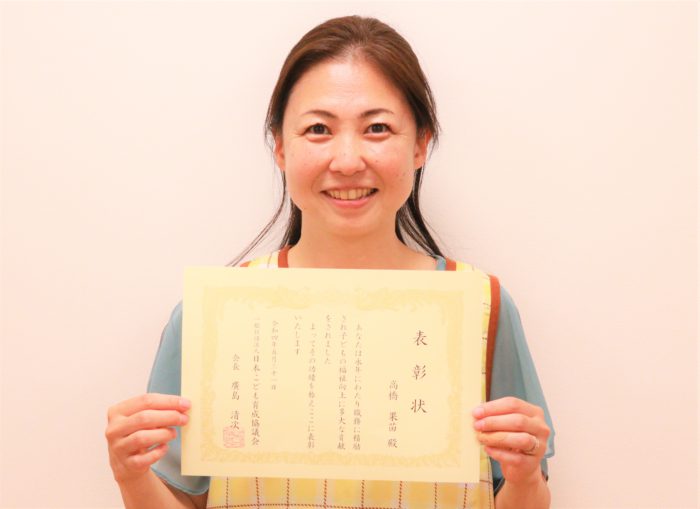 表彰状
高橋 果苗 殿
あなたは永年にわたり職務に精励
され子どもの福祉向上に多大な貢献
をされました
よってその功績を称えここに表彰
いたします
令和四年五月二十一日
一般社団法人日本こども育成協議会
会長 廣島 清次